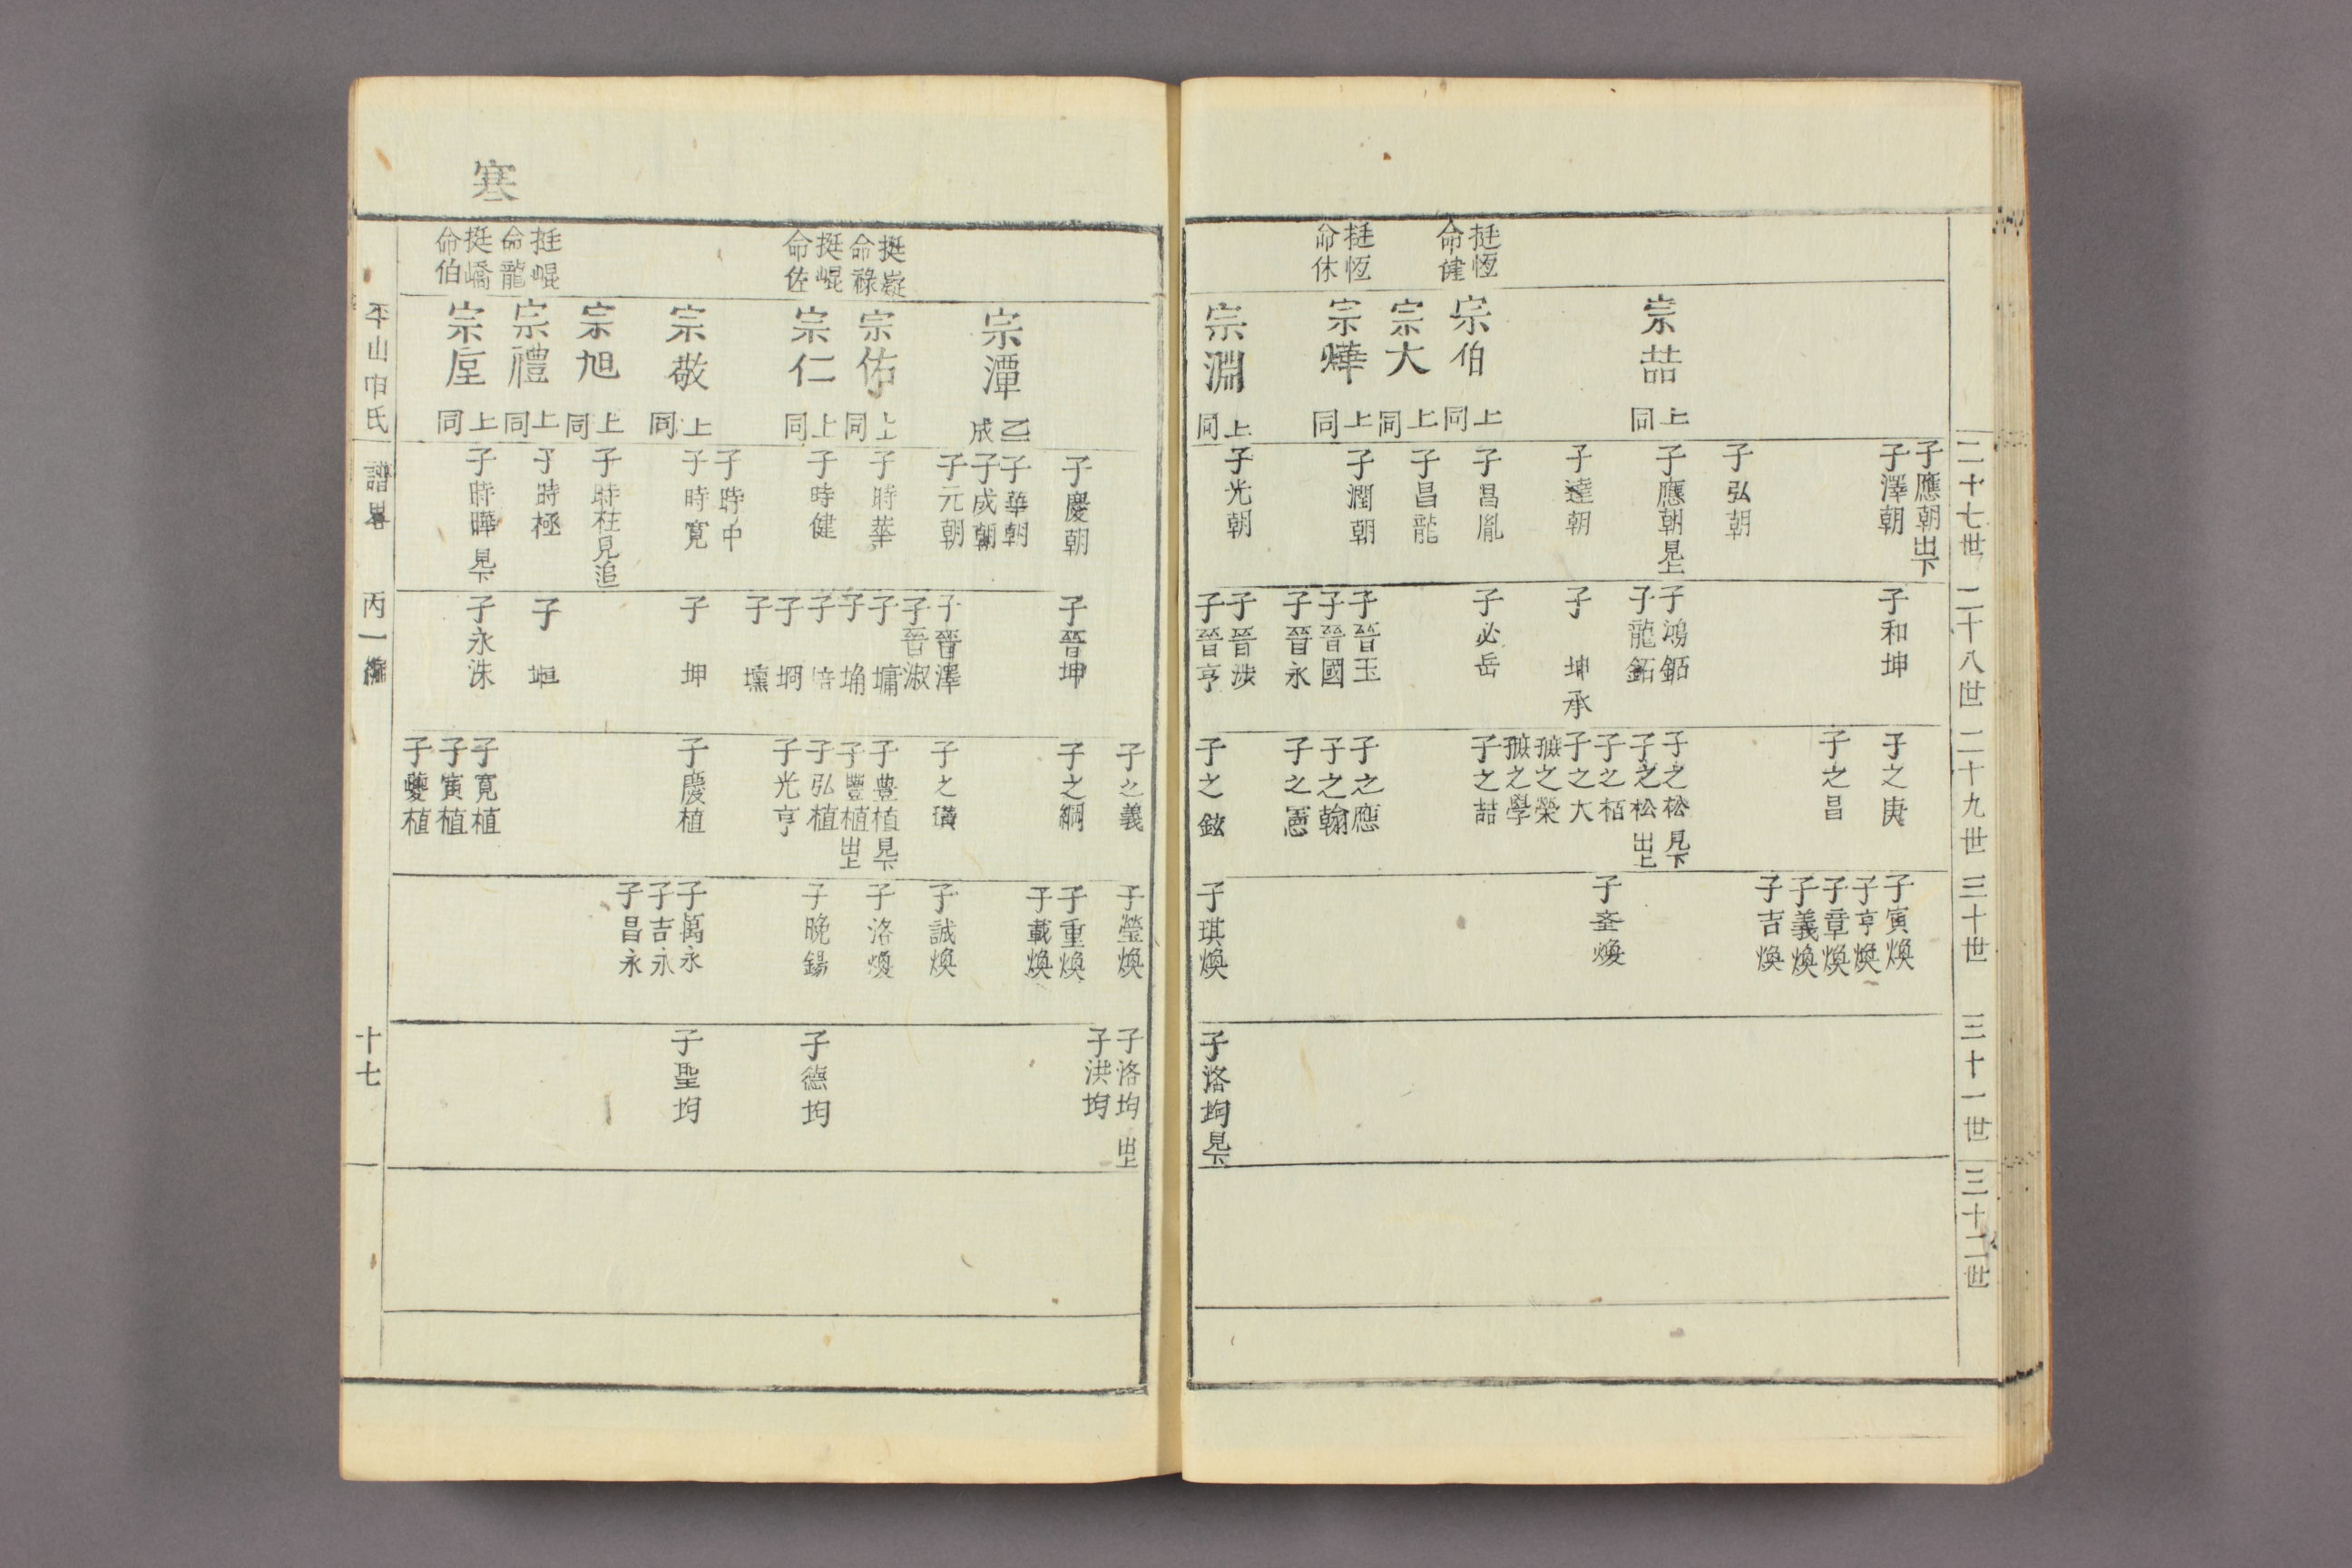 二十七世
二十八世
二十九世
三十世
三十一世
三十二世
挺恆
命健
挺恆
命休
宗喆
上同
宗伯
上同
宗大
上同
宗燁
上同
宗淵
上同
子應朝出下
子澤朝
子弘朝
子應朝見上
子達朝
子昌胤
子昌龍
子潤朝
子光朝
子和坤
子鴻鉐
子龍鉐
子坤承
子必岳
子晉玉
子晉國
子晉永
子晉涉
子晉亨
子之庚
子之昌
子之松見下
子之松出上
子之栢
子之大
孽之榮
孽之學
子之喆
子之應
子之翰
子之憲
子之鉉
子寅煥
子亨煥
子章煥
子義煥
子吉煥
子奎煥
子琪煥
子洛均見下
寒
挺嶷
命祿
挺崐
命佐
挺崐
命龍
挺嶠
命伯
宗潭
乙成
宗佑
上同
宗仁
上同
宗敬
上同
宗旭
上同
宗禮
上同
宗垕
上同
子慶朝
子華朝
子成朝
子元朝
子時華
子時健
子時中
子時寬
子時柱見追
子時極
子時曄見下
子晉坤
子晉澤
子晉淑
子墉
子埇
子培
子坰
子壎
子坤
子垣
子永洙
子之義
子之綱
子之璜
子豊植見下
子豐植出上
子弘植
子光亨
子慶植
子寬植
子寅植
子夔植
子瑩煥
子重煥
子載煥
子誠煥
子洛煥
子晚錫
子萬永
子吉永
子昌永
子洛均出上
子洪均
子德均
子聖均
平山申氏
譜畧
丙一編
十七